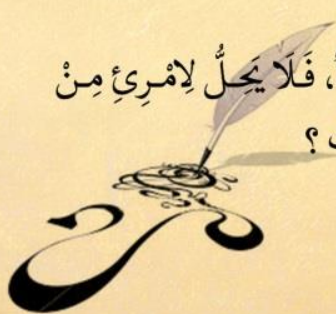 ، فَلَا يَحِلُّ لِامْرِئٍ مِنْ
؟